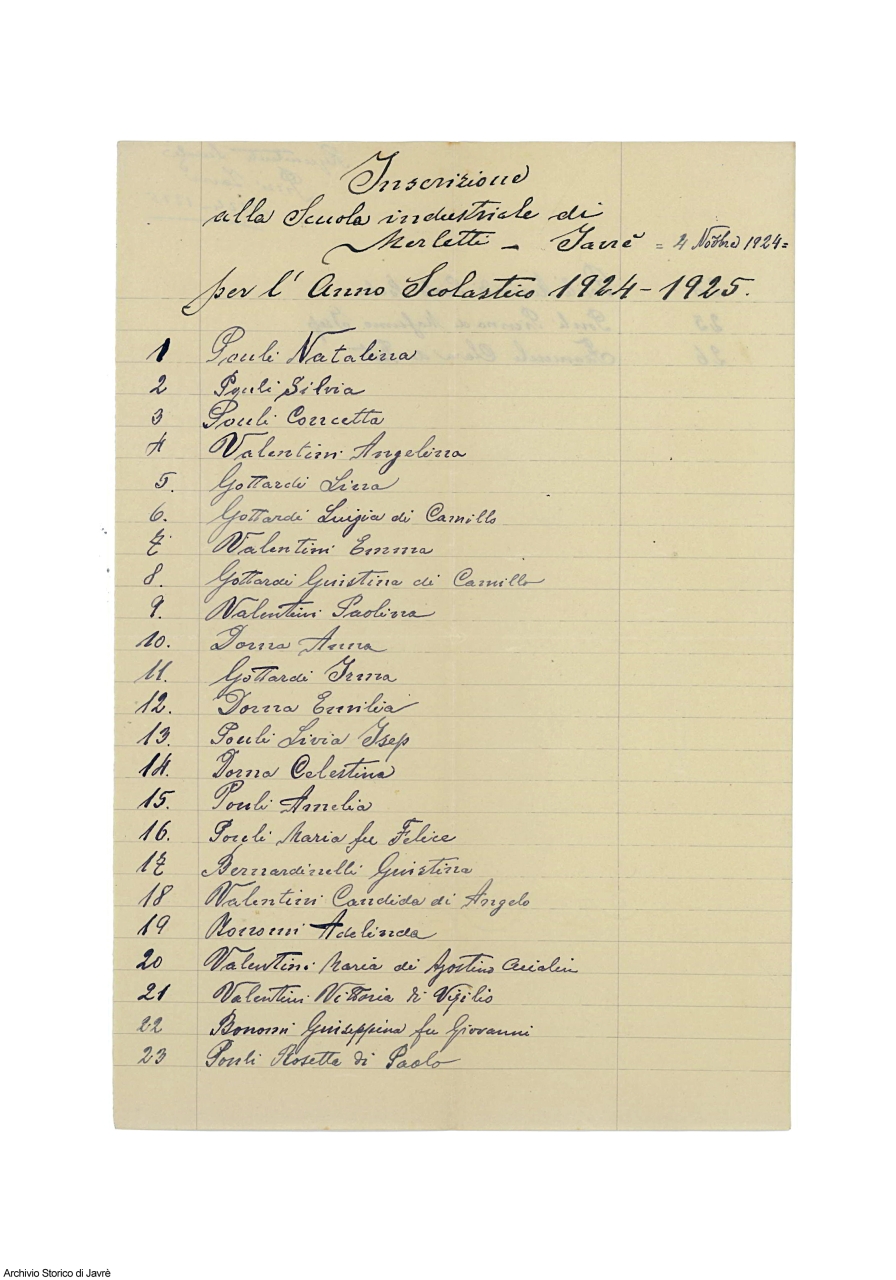 Inscrizione
alla Scuola industriale di
Merletti - Javrè = 4 Nobbre 1924=
per l' Anno Scolastico 1924-1925.
1 Pouli Natalina
2 Pouli Silvia
3 Pouli Concetta
4 Valentini Angelina
5. Gottardi Lina
6. Gottardi Luigia di Camillo
7 Valentini Emma
8. Gottardi Guistina di Camillo
9. Valentini Paolina
10. Dorna Anna
11. Gottardi Irma
12. Dorna Emilia
13. Pouli Livia Isep
14. Dorna Celestina
15. Pouli Amelia
16. Pouli Maria fu Felice
17 Bernardinelli Guistina
18 Valentini Candida di Angelo
19 Bonomi Adelinda
20 Valentini Maria di Agostino
21 Valentini Vittoria di Vigilio
22 Bonomi Guiseppina fu Giovanni
23 Pouli Rosetta di Paolo
Archivio Storico di Javrè